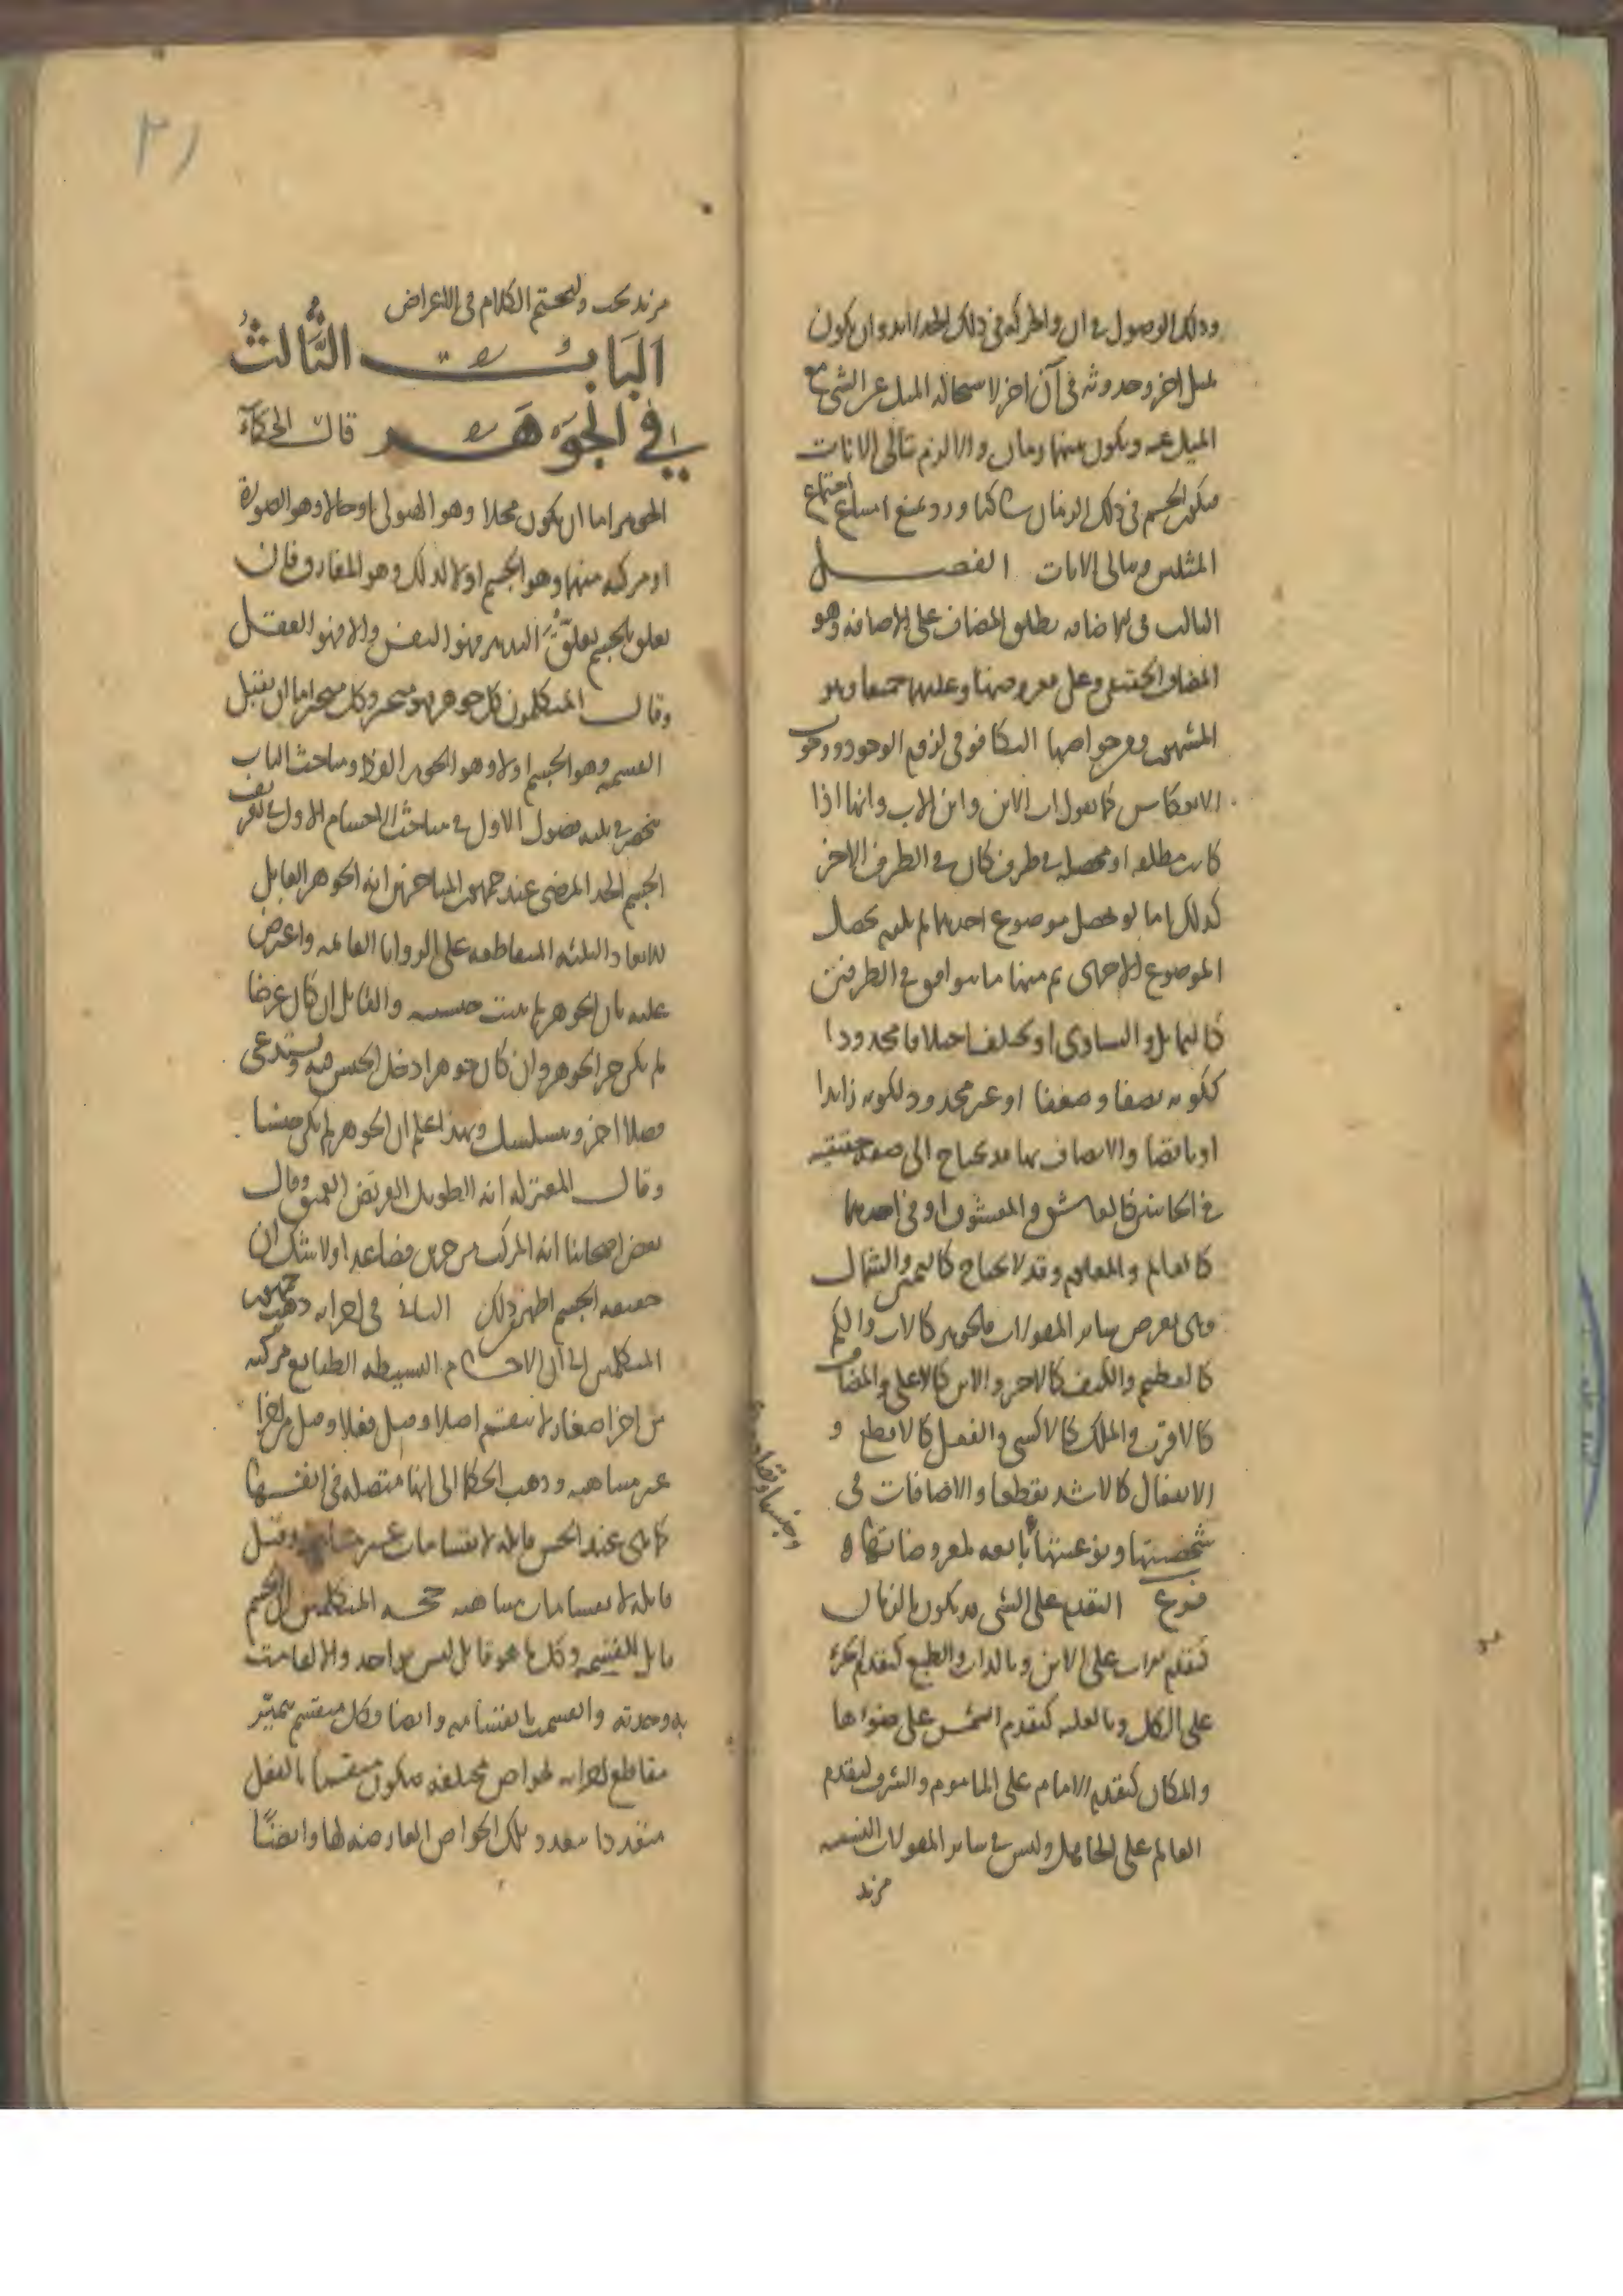 وذلك الوصول في ان والحركة في ذلك الحد لا بد وان يكون
لميل اخر وحدوثه في آن اخر لاستحالة الميل عن الشي مع
الميل عنه ويكون بينهما زمان والا لزم تتالى الانات
فيكون الجسم في ذلك الزمان ساكنا ورد بمنع امتناع اجتماع
المثلين وتتالى الانات الفصل
الثالث في الاضافه يطلق المضاف على الاضافه وهو
المضاف الحقيقي وعلى معروضها وعليهما جميعا وهو
المشهور ومن خواصها التكافو في لزوم الوجود ووجوب
الانعكاس كما تقول اب الابن وابن الاب وانها اذا
كانت مطلقه او محصله في طرف كان في الطرف الاخر
كذلك اما لو تحصل موضوع احديهما لم يلزم تحصل
الموضوع الاخرى ثم منها ما يتوافق في الطرفين
كالتماثل والتساوى او يختلف اختلافا محدودا
ككونه نصفا وضعفا او غير محدود ككونه زايدا
او ناقصا والاتصاف بها قد يحتاج الى صفه حقيقيه
في الجانبين كالعاشق والمعشوق او في احديهما
كالعالم والمعلوم وقد لا يحتاج كاليمين والشمال
وهي تعرض ساير المقولات فالجوهر كالاب والكم
كالعظيم والكيف كالاحر والاين كالاعلى والمضاف
كالاقرب والملك كالاكسى والفعل كالاقطع و
الانفعال كالاشد تقطعا والاضافات في
شخصيتها ونوعيتها تابعه لمعروضاتها
وجنسها وتضادها
فرع التقدم على الشي قد يكون بالزمان
كتقدم الاب على الابن وبالذات والطبع كتقدم الجزء
على الكل وبالعليه كتقدم الشمس على ضوءها
والمكان كتقدم الامام على الماموم والشرف كتقدم
العالم على الجاهل وليس في ساير المقولات النسبيه
مزيد
٢١
مزيد بحث ولنختم الكلام في الاعراض
البَابُ الثَّالثُ
في الجَوَهَر قال الحكمآء
الجوهر اما ان يكون محلا وهو الهيولى او حالا وهو الصورة
او مركبه منهما وهو الجسم او لا كذلك وهو المفارق فان
تعلق بالجسم تعلق التدبير فهو النفس والا فهو العقل
وقال المتكلمون كل جوهر فهو متحيز وكل متحيز اما ان يقبل
القسمه وهو الجسم اولا وهو الجوهر الفرد ومباحث الباب
تنحصر في ثلثه فصول الاول في مباحث الاجسام الاول في تعريف
الجسم الحد المرضى عند جمهور المباحثين انه الجوهر القابل
للابعاد الثلثه المتقاطعه على الزوايا القائمه واعترض
عليه بان الجوهر لم يثبت جنسيته والقابل ان كان عرضا
لم يكن جزء الجوهر وان كان جوهرا دخل الجنس فيه ويستدعى
فصلا اخر ويتسلسل وبهذا علم ان الجوهر لم يكن جنسا
وقال المعتزله انه الطويل العريض العميق وقال
بعض اصحابنا انه المركب من جزين فصاعدا ولا شك ان
حقيقه الجسم اظهر من ذلك الثاني في اجزايه ذهب جمهور
المتكلمين الى ان الاجسام البسيطه الطبايع مركبه
من اجزا صغار لا تنقسم اصلا وقيل فعلا وقيل من اجزا
غير متناهيه وذهب الحكما الى انها متصله في انفسها
كما هي عند الحس قابله لانقسامات غير متناهيه وقيل
قابله لانقسامات متناهيه حجه المتكلمين ان الجسم
قابل للقسمه وكل ما هو قابل ليس بواحد والا لقامت
به وحدته وانقسمت بانقسامه وايضا وكل منقسم تميز
مقاطع اجزايه لخواص مختلفه فيكون منقسما بالفعل
متعددا بتعدد تلك الخواص العارضه لها وايضًا